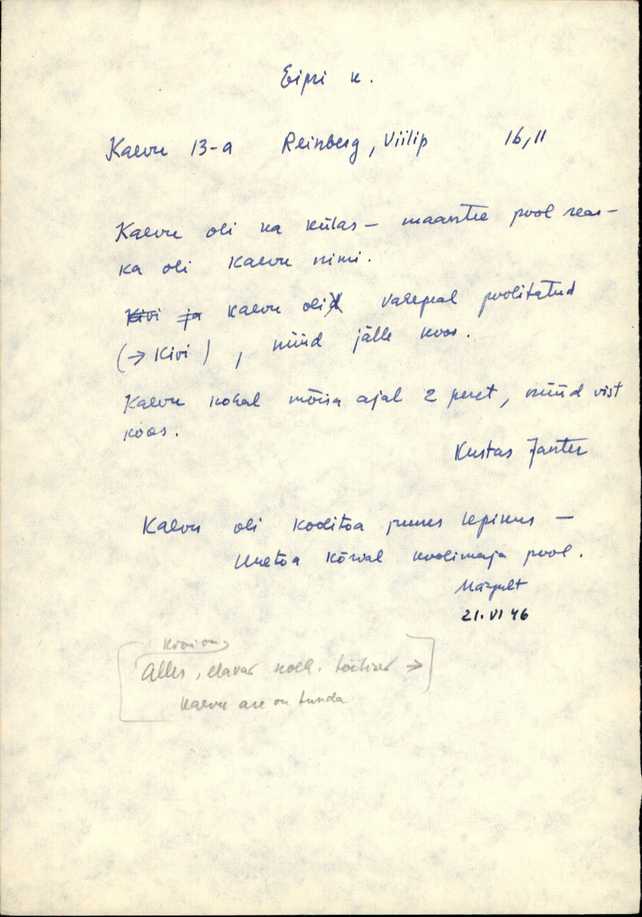 Eipri k.
Kaevu 13-a Reinberg, Viilip 16,11
Kaevu oli ka külas — maantee pool sea-
ka oli Kaevu nimi.
Kivi ja Kaevu olid vahepeal poolitatud
(→ Kivi), nüüd jälle koos.
Kaevu kohal mõisa ajal 2 peret, nüüd vist
koos.
Kustas Janter
Kaevu oli koolitoa juures lepikus —
Uuetoa kõrval koolimaja pool.
21.VI 46
Alles, elavad
Kaevu ase on tunda